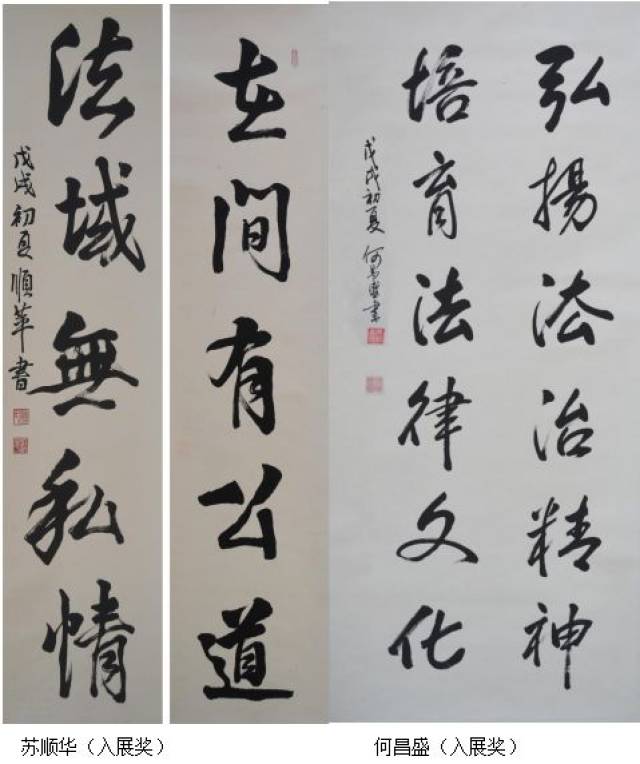 間有公道
法域無私情
戊戌初夏順華書
弘揚法治精神
培育法律文化
戊戌初夏何昌盛書
苏顺华（入展奖）
何昌盛（入展奖）